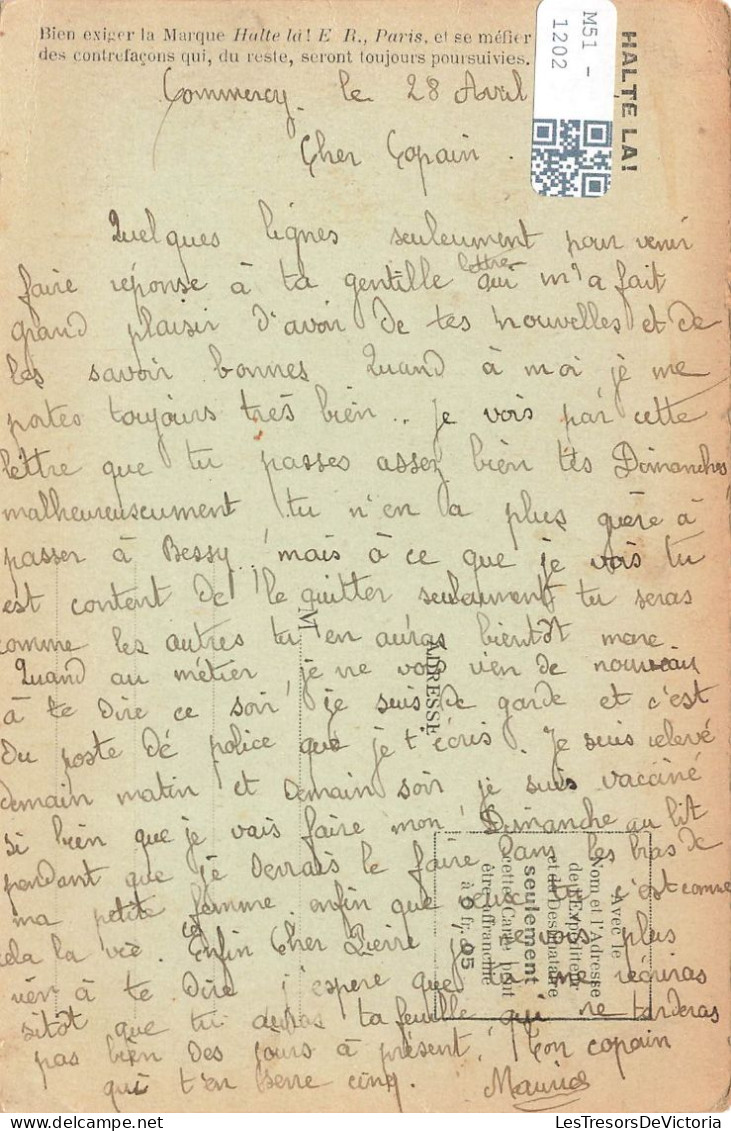 Bien exiger la Marque Halte là! E R., Paris, et se méfier
des contrefaçons qui, du reste, seront toujours poursuivies.
HALTE LA!
M51 -
1202
Commercy, le 28 Avril
Cher Copain.
Quelques lignes seuleument pour venir
faire réponse à ta gentille lettre qui m'a fait
grand plaisir d'avoir de tes nouvelles et de
les savoir bonnes Quand à moi je me
portes toujours très bien.. je vois par cette
lettre que tu passes assez bien tes Dimanches
malheureuseument tu n'en a plus guère à
passer à Bessy, mais à ce que je vois tu
est content de le quitter seuleument tu seras
comme les autres tu en auras bientôt mare
Quand au métier je ne vois rien de nouveau
à te dire ce soir je suis de garde et c'est
du poste de police que je t'écris. Je suis relevé
demain matin et demain soir je suis vacciné
si bien que je vais faire mon Dimanche au lit
pendant que je devrais le faire dans les bras de
ma petite femme enfin que veux tu c'est comme
cela la vie. Enfin Cher Pierre je ne vois plus
rien à te dire j'espere que tu me récriras
sitôt que tu auras ta feuille qui ne tarderas
pas bien des jours à présent. Ton copain
qui t'en serre cinq. Maurice
M
ADRESSE
Avec le
Nom et l'Adresse
de l'Expéditeur
et du Destinataire
seulement
cette Carte peut
être affranchie
à 0 fr. 05
LesTresorsDeVictoria - Delcampe.net